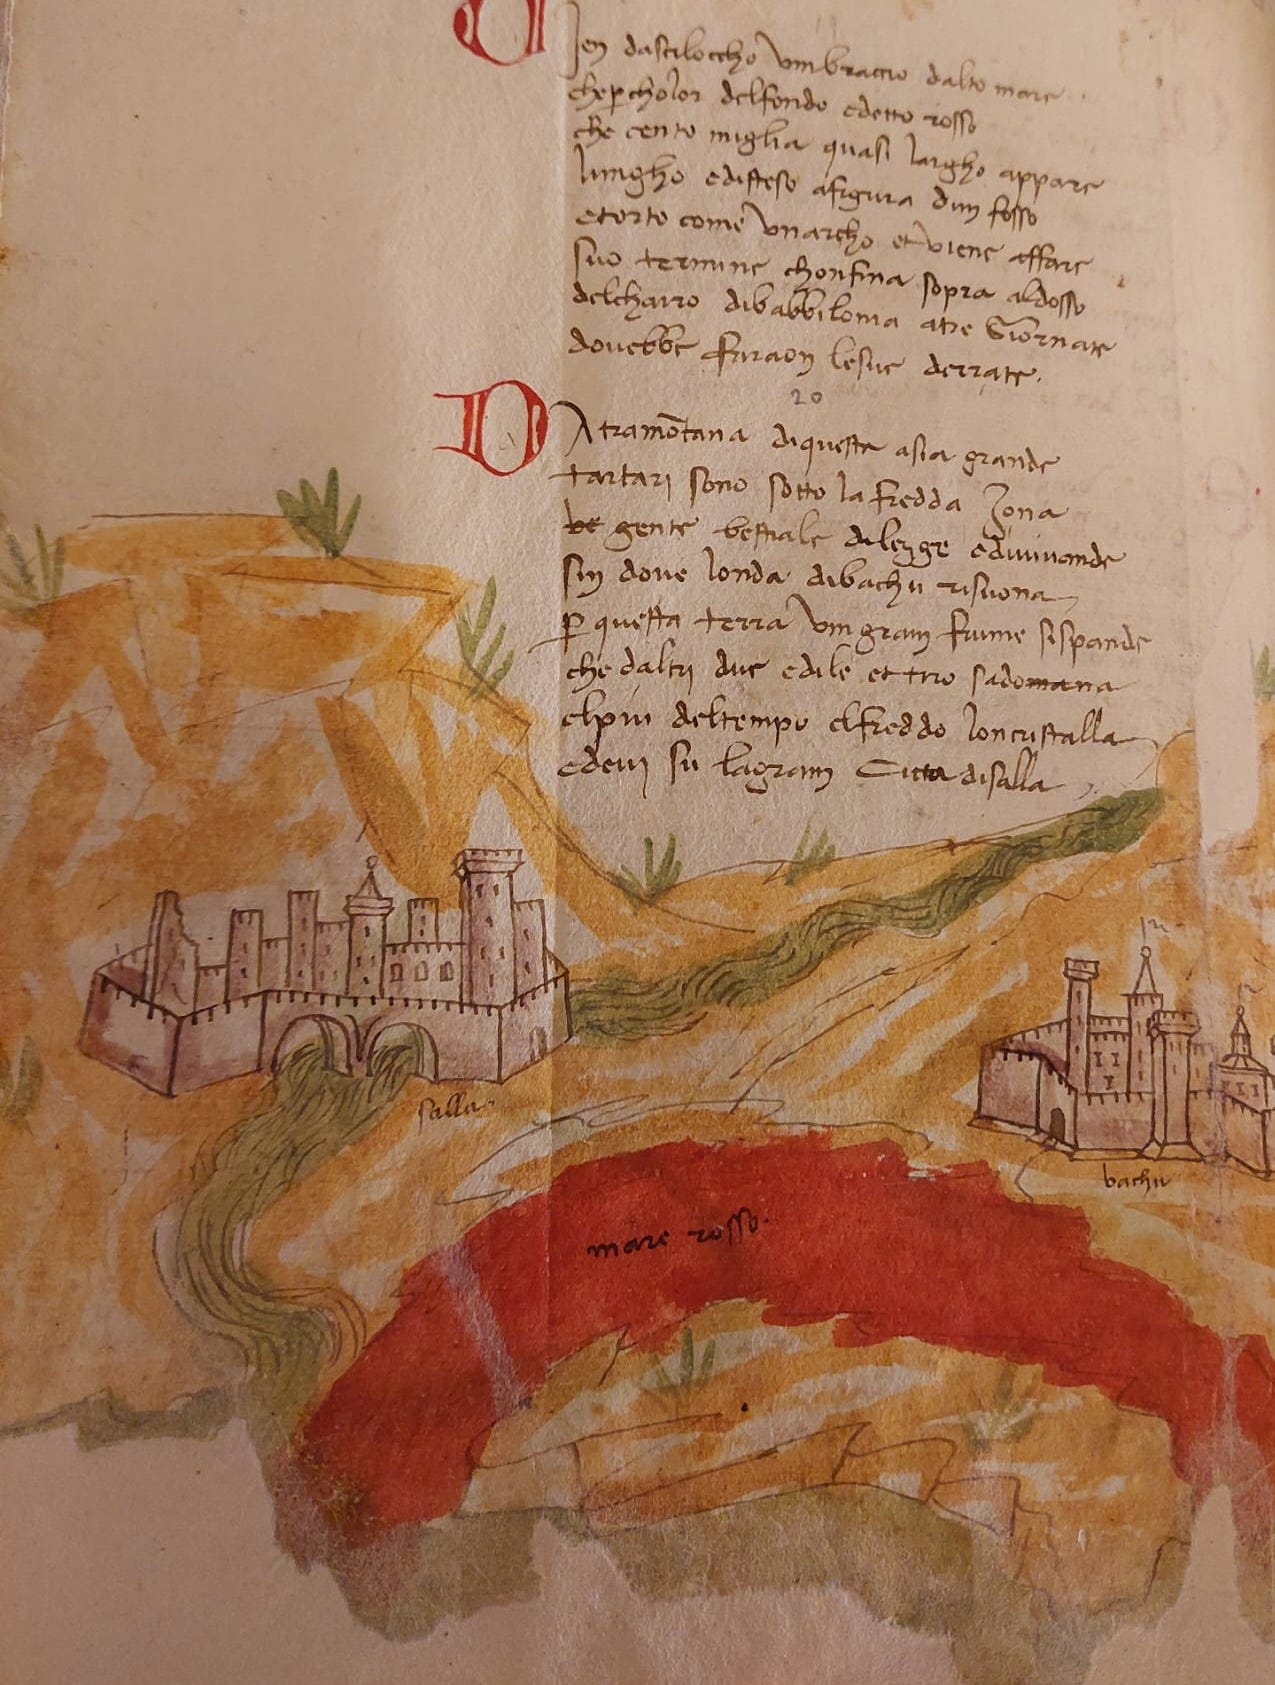 Vien dasciloccho vmbraccio dalto mare
chepcholor delfondo edetto rosso
che cento miglia quasi largho appare
lungho edisteso afigura dun fosso
etorto come vnarcho et viene affare
suo termine chonfina sopra aldosso
delchairo dibabbilonia atre Giornate
douebbe faraon lesue derrate.
20
DA tramōtana diquesta asia grande
tartari sono sotto la fredda zona
gente bestiale dilegge ediuiuande
sin doue londa dibachu risuona
p questa terra vm gram fiume sispande
che daltrj due edile et trio sadona
elpiu deltempo elfreddo loncristalla
edeuj su lagram Citta disalla
salla
bachu
mare rosso.